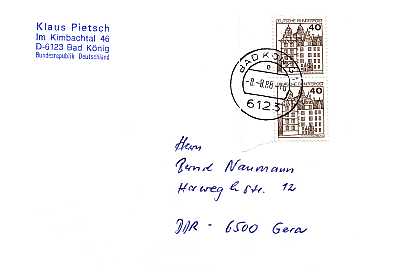 Klaus Pietsch
Im Kimbachtal 46
D-6123 Bad König
Bundesrepublik Deutschland
DEUTSCHE BUNDESPOST
40
BAD KÖNIG 1
e
6123
40
Herrn
Bernd Naumann
Herwegh str. 12
DDR - 6500 Gera